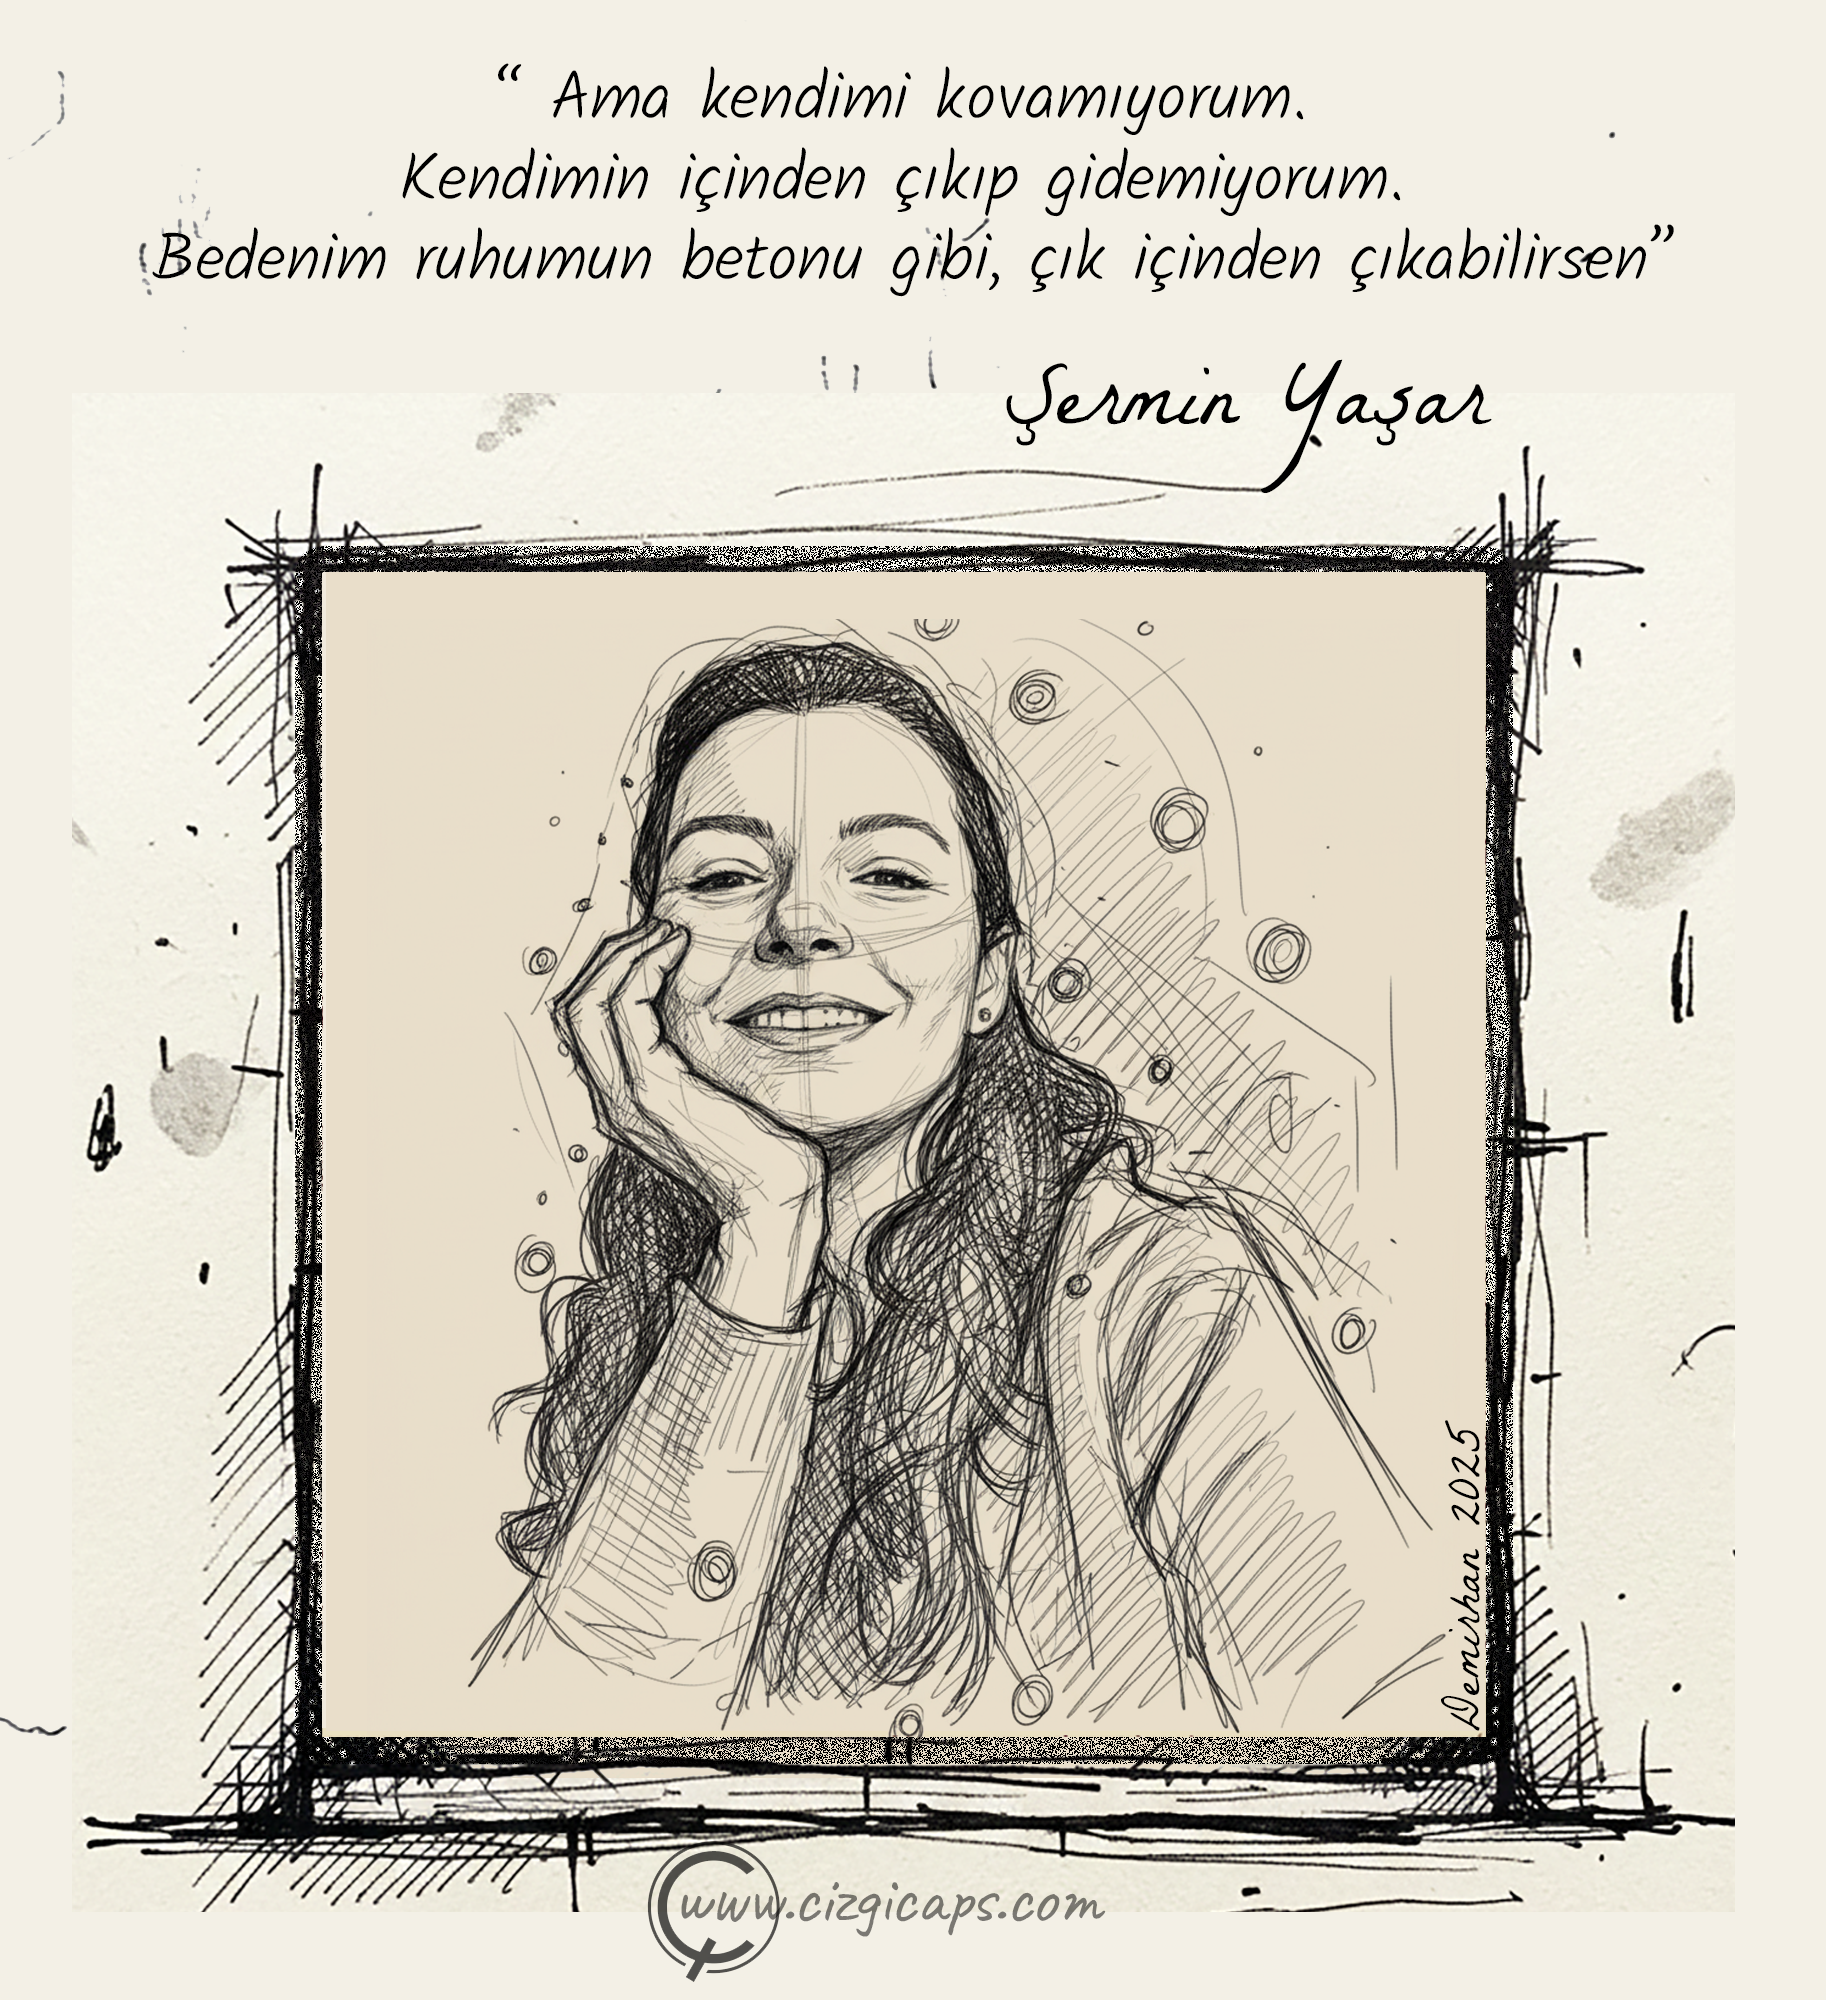 “ Ama kendimi kovamıyorum.
Kendimin içinden çıkıp gidemiyorum.
Bedenim ruhumun betonu gibi, çık içinden çıkabilirsen”
Şermin Yaşar
Demirhan 2025
www.cizgicaps.com